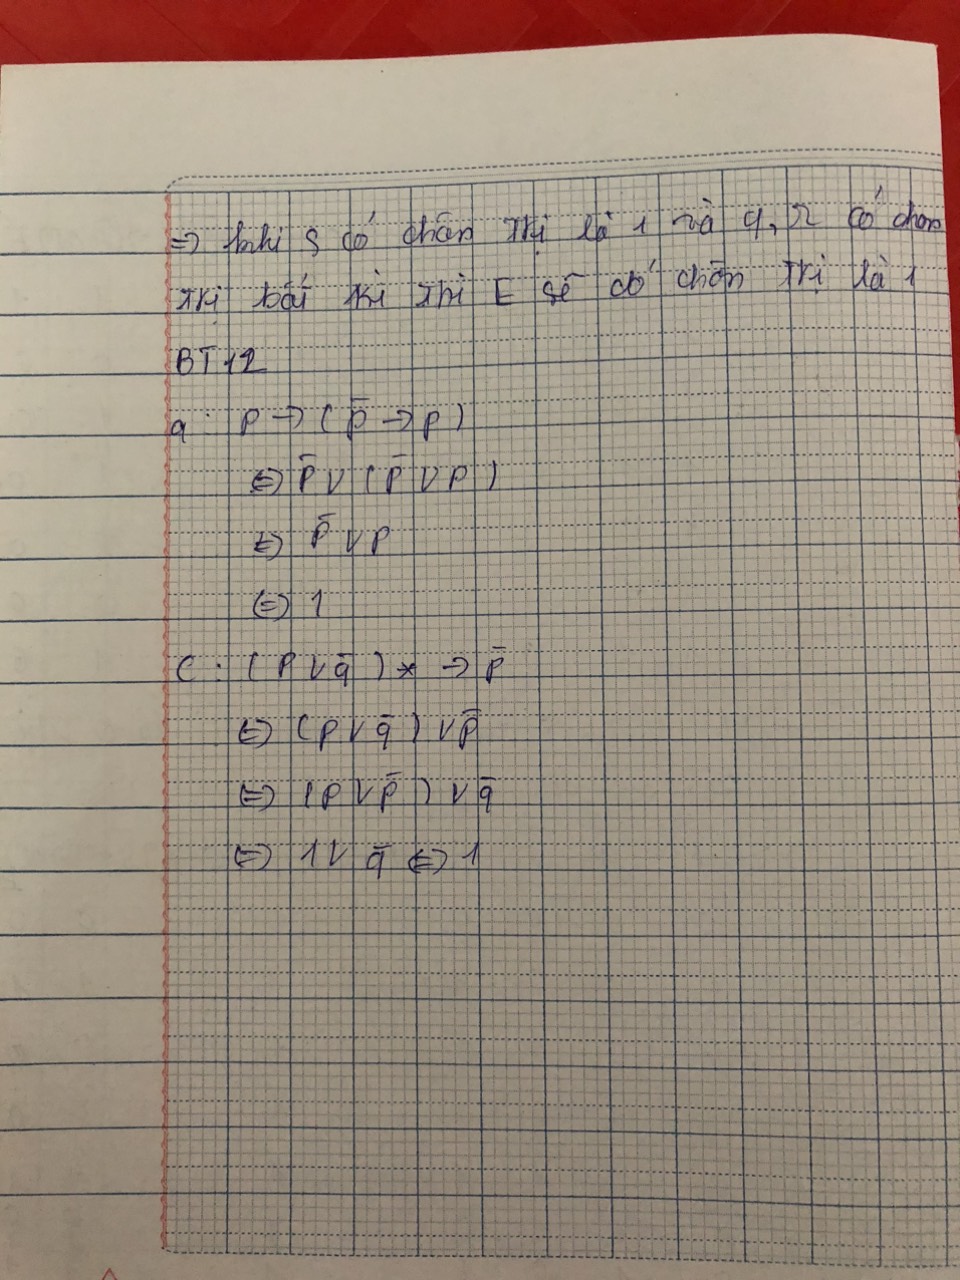 => khi s có chân trị là 1 và q, r có chân
trị bất kì thì E sẽ có chân trị là 1
BT 12
a: p → ( p̄ → p )
⇔ p̄ ∨ ( p̄ ∨ p )
⇔ p̄ ∨ p
⇔ 1
c: ( p ∨ q̄ ) * → p̄
⇔ ( p ∨ q̄ ) ∨ p̄
⇔ ( p ∨ p̄ ) ∨ q̄
⇔ 1 ∨ q̄ ⇔ 1